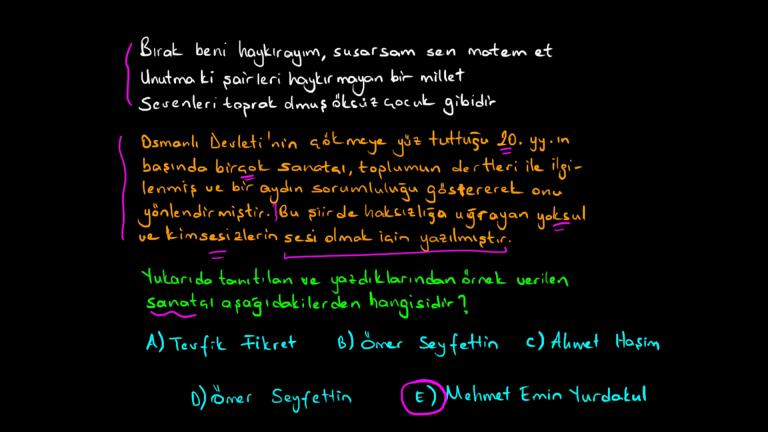 Bırak beni haykırayım, susarsam sen matem et
Unutma ki şairleri haykırmayan bir millet
Sevenleri toprak olmuş öksüz çocuk gibidir
Osmanlı Devleti'nin çökmeye yüz tuttuğu 20. yy.ın
başında birçok sanatçı, toplumun dertleri ile ilgi-
lenmiş ve bir aydın sorumluluğu göstererek onu
yönlendirmiştir. Bu şiir de haksızlığa uğrayan yoksul
ve kimsesizlerin sesi olmak için yazılmıştır.
Yukarıda tanıtılan ve yazdıklarından örnek verilen
sanatçı aşağıdakilerden hangisidir?
A) Tevfik Fikret B) Ömer Seyfettin C) Ahmet Haşim
D) Ömer Seyfettin E) Mehmet Emin Yurdakul